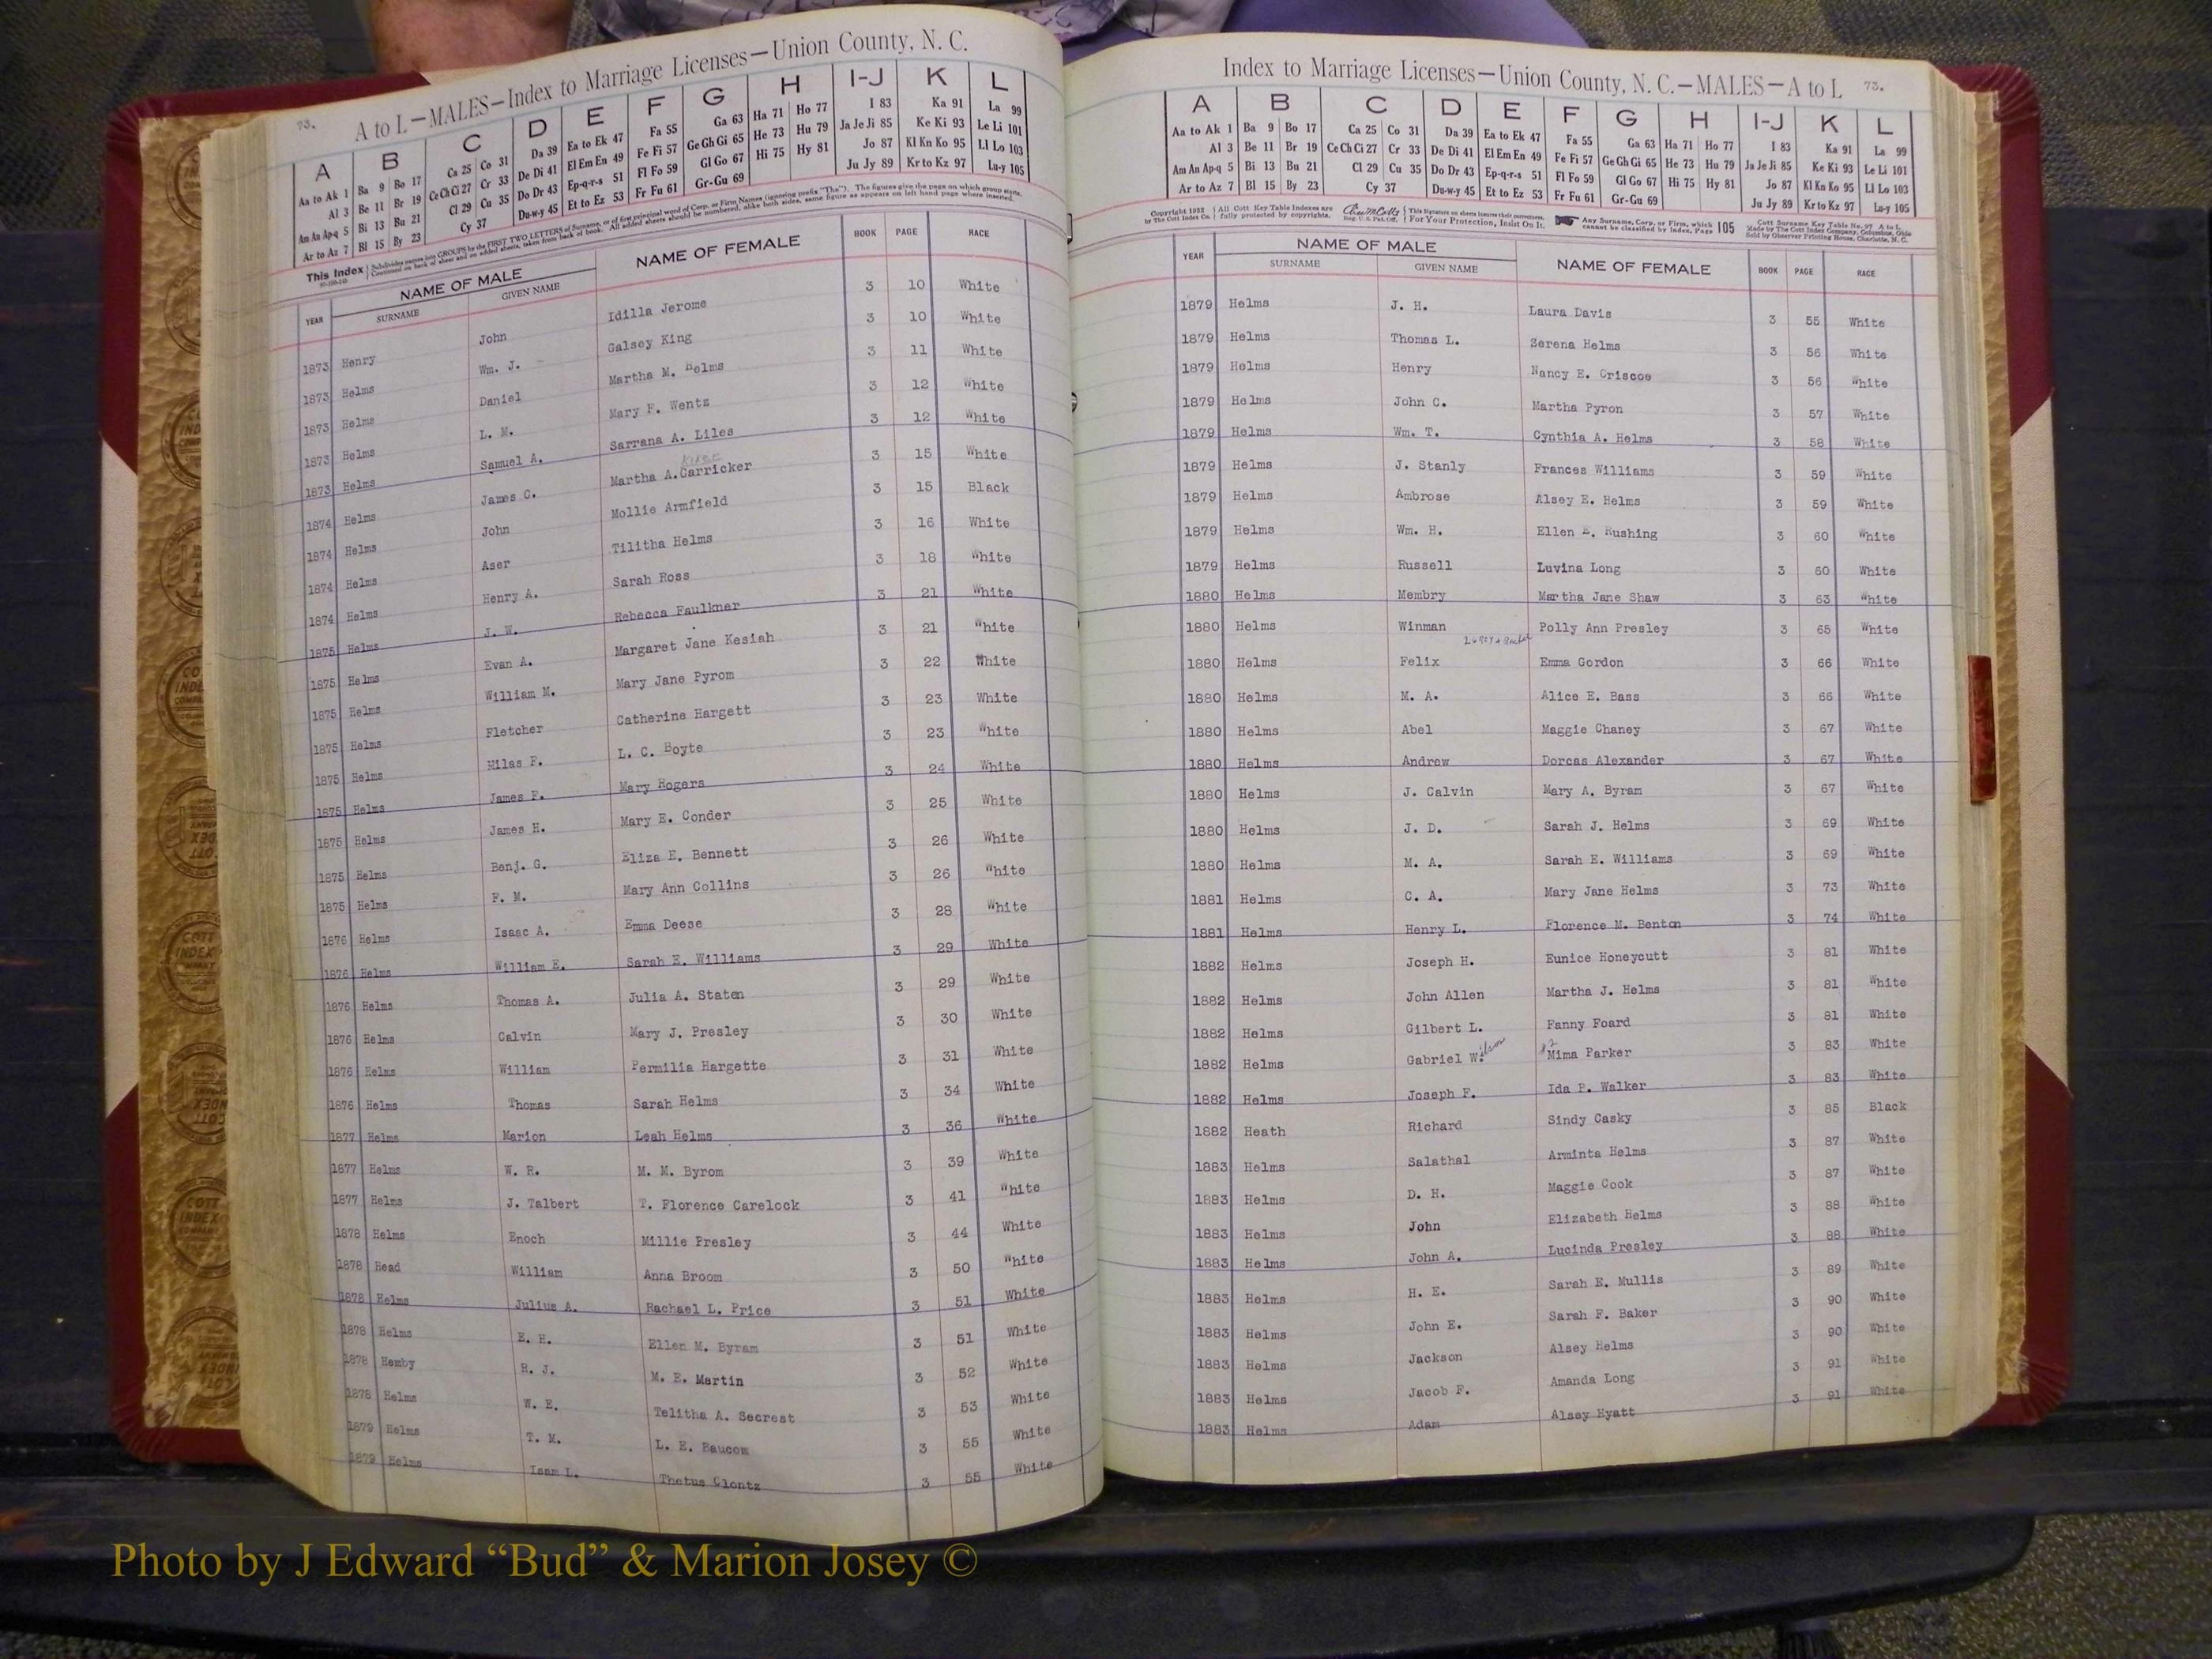 73.
A to L—MALES—Index to Marriage Licenses—Union County, N. C.
A B C D E F G H I-J K L
Aa to Ak 1 Ba 9 Bo 17 Ca 25 Co 31 Da 39 Ea to Ek 47 Fa 55 Ga 63 Ha 71 Ho 77 I 83 Ka 91 La 99
Al 3 Be 11 Br 19 Ce Ch Ci 27 Cr 33 De Di 41 El Em En 49 Fe Fi 57 Ge Gh Gi 65 He 73 Hu 79 Ja Je Ji 85 Ke Ki 93 Le Li 101
Am An Ap-q 5 Bi 13 Bu 21 Cl 29 Cu 35 Do Dr 43 Ep-q-r-s 51 Fl Fo 59 Gl Go 67 Hi 75 Hy 81 Jo 87 Kl Kn Ko 95 Ll Lo 103
Ar to Az 7 Bl 15 By 23 Cy 37 Du-w-y 45 Et to Ez 53 Fr Fu 61 Gr-Gu 69 Ju Jy 89 Kr to Kz 97 Lu-y 105
This Index Subdivides names into GROUPS by the FIRST TWO LETTERS of Surname, or of first principal word of Corp. or Firm Names (ignoring prefix "The"). The figures give the page on which group starts.
Continued on back of sheet and on added sheets, taken from back of book. All added sheets should be numbered, alike both sides, same figure as appears on left hand page where inserted.
YEAR NAME OF MALE NAME OF FEMALE BOOK PAGE RACE
SURNAME GIVEN NAME
1873 Henry John Idilla Jerome 3 10 White
1873 Helms Wm. J. Galsey King 3 10 White
1873 Helms Daniel Martha M. Helms 3 11 White
1873 Helms L. M. Mary F. Wentz 3 12 White
1873 Helms Samuel A. Sarrana A. Liles 3 12 White
1874 Helms James C. Martha A. Carricker 3 15 White
1874 Helms John Mollie Armfield 3 15 Black
1874 Helms Aser Tilitha Helms 3 16 White
1874 Helms Henry A. Sarah Ross 3 18 White
1875 Helms J. W. Rebecca Faulkner 3 21 White
1875 Helms Evan A. Margaret Jane Kesiah 3 21 White
1875 Helms William M. Mary Jane Pyrom 3 22 White
1875 Helms Fletcher Catherine Hargett 3 23 White
1875 Helms Milas F. L. C. Boyte 3 23 White
1875 Helms James F. Mary Rogers 3 24 White
1875 Helms James H. Mary E. Conder 3 25 White
1875 Helms Benj. G. Eliza E. Bennett 3 26 White
1875 Helms F. M. Mary Ann Collins 3 26 White
1876 Helms Isaac A. Emma Deese 3 28 White
1876 Helms William E. Sarah E. Williams 3 29 White
1876 Helms Thomas A. Julia A. Staten 3 29 White
1876 Helms Calvin Mary J. Presley 3 30 White
1876 Helms William Permilia Hargette 3 31 White
1876 Helms Thomas Sarah Helms 3 34 White
1877 Helms Marion Leah Helms 3 36 White
1877 Helms W. R. M. M. Byrom 3 39 White
1877 Helms J. Talbert T. Florence Carelock 3 41 White
1878 Helms Enoch Millie Presley 3 44 White
1878 Head William Anna Broom 3 50 White
1878 Helms Julius A. Rachael L. Price 3 51 White
1878 Helms E. H. Ellen M. Byram 3 51 White
1878 Hemby R. J. M. E. Martin 3 52 White
1878 Helms W. E. Telitha A. Secrest 3 53 White
1879 Helms T. M. L. E. Baucom 3 55 White
1879 Helms Isam L. Thetus Clontz 3 55 White
Index to Marriage Licenses—Union County, N. C.—MALES—A to L 73.
A B C D E F G H I-J K L
Aa to Ak 1 Ba 9 Bo 17 Ca 25 Co 31 Da 39 Ea to Ek 47 Fa 55 Ga 63 Ha 71 Ho 77 I 83 Ka 91 La 99
Al 3 Be 11 Br 19 Ce Ch Ci 27 Cr 33 De Di 41 El Em En 49 Fe Fi 57 Ge Gh Gi 65 He 73 Hu 79 Ja Je Ji 85 Ke Ki 93 Le Li 101
Am An Ap-q 5 Bi 13 Bu 21 Cl 29 Cu 35 Do Dr 43 Ep-q-r-s 51 Fl Fo 59 Gl Go 67 Hi 75 Hy 81 Jo 87 Kl Kn Ko 95 Ll Lo 103
Ar to Az 7 Bl 15 By 23 Cy 37 Du-w-y 45 Et to Ez 53 Fr Fu 61 Gr-Gu 69 Ju Jy 89 Kr to Kz 97 Lu-y 105
Copyright 1932 by The Cott Index Co. All Cott Key Table Indexes are fully protected by copyrights. Reg. U. S. Pat. Off. This Signature on sheets insures their correctness. For Your Protection, Insist On It. Any Surname, Corp. or Firm, which cannot be classified by Index, Page 105 Cott Surname Key Table No. 97 A to L Made by The Cott Index Company, Columbus, Ohio Sold by Observer Printing House, Charlotte, N. C.
YEAR NAME OF MALE NAME OF FEMALE BOOK PAGE RACE
SURNAME GIVEN NAME
1879 Helms J. H. Laura Davis 3 55 White
1879 Helms Thomas L. Serena Helms 3 56 White
1879 Helms Henry Nancy E. Criscoe 3 56 White
1879 Helms John C. Martha Pyron 3 57 White
1879 Helms Wm. T. Cynthia A. Helms 3 58 White
1879 Helms J. Stanly Frances Williams 3 59 White
1879 Helms Ambrose Alsey E. Helms 3 59 White
1879 Helms Wm. H. Ellen E. Rushing 3 60 White
1879 Helms Russell Luvina Long 3 60 White
1880 Helms Membry Martha Jane Shaw 3 63 White
1880 Helms Winman Polly Ann Presley 3 65 White
1880 Helms Felix Emma Gordon 3 66 White
1880 Helms M. A. Alice E. Bass 3 66 White
1880 Helms Abel Maggie Chaney 3 67 White
1880 Helms Andrew Dorcas Alexander 3 67 White
1880 Helms J. Calvin Mary A. Byram 3 67 White
1880 Helms J. D. Sarah J. Helms 3 69 White
1880 Helms M. A. Sarah E. Williams 3 69 White
1881 Helms C. A. Mary Jane Helms 3 73 White
1881 Helms Henry L. Florence M. Benton 3 74 White
1882 Helms Joseph H. Eunice Honeycutt 3 81 White
1882 Helms John Allen Martha J. Helms 3 81 White
1882 Helms Gilbert L. Fanny Foard 3 81 White
1882 Helms Gabriel Wilson #2 Mima Parker 3 83 White
1882 Helms Joseph F. Ida P. Walker 3 83 White
1882 Heath Richard Sindy Casky 3 85 Black
1883 Helms Salathal Arminta Helms 3 87 White
1883 Helms D. H. Maggie Cook 3 87 White
1883 Helms John Elizabeth Helms 3 88 White
1883 Helms John A. Lucinda Presley 3 88 White
1883 Helms H. E. Sarah E. Mullis 3 89 White
1883 Helms John E. Sarah F. Baker 3 90 White
1883 Helms Jackson Alsey Helms 3 90 White
1883 Helms Jacob F. Amanda Long 3 91 White
1883 Helms Adam Alsey Hyatt 3 91 White
Photo by J Edward “Bud” & Marion Josey ©